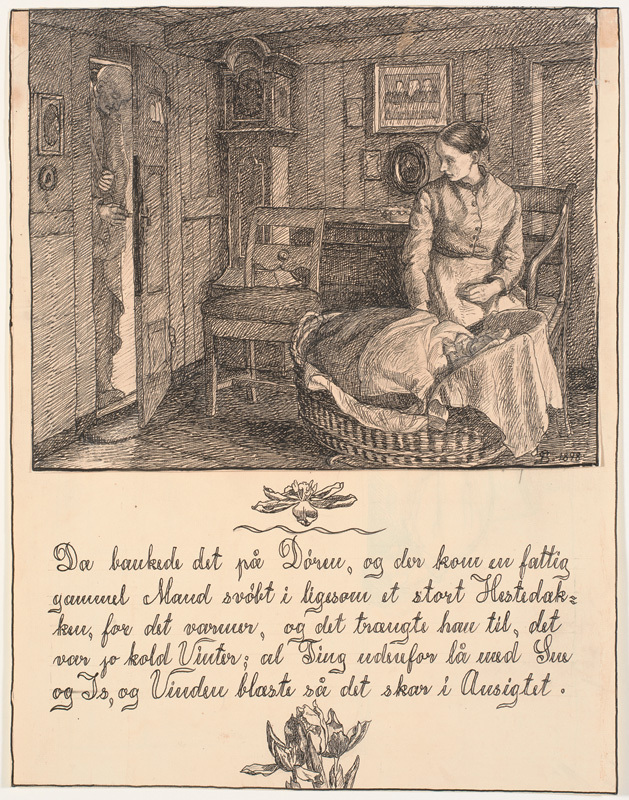 B. 1898
Da bankede det på Døren, og der kom en fattig
gammel Mand svøbt i ligesom et stort Hestedæk-
ken, for det varmer, og det trængte han til, det
var jo kold Vinter; al Ting udenfor lå med Sne
og Is, og Vinden blæste så det skar i Ansigtet.